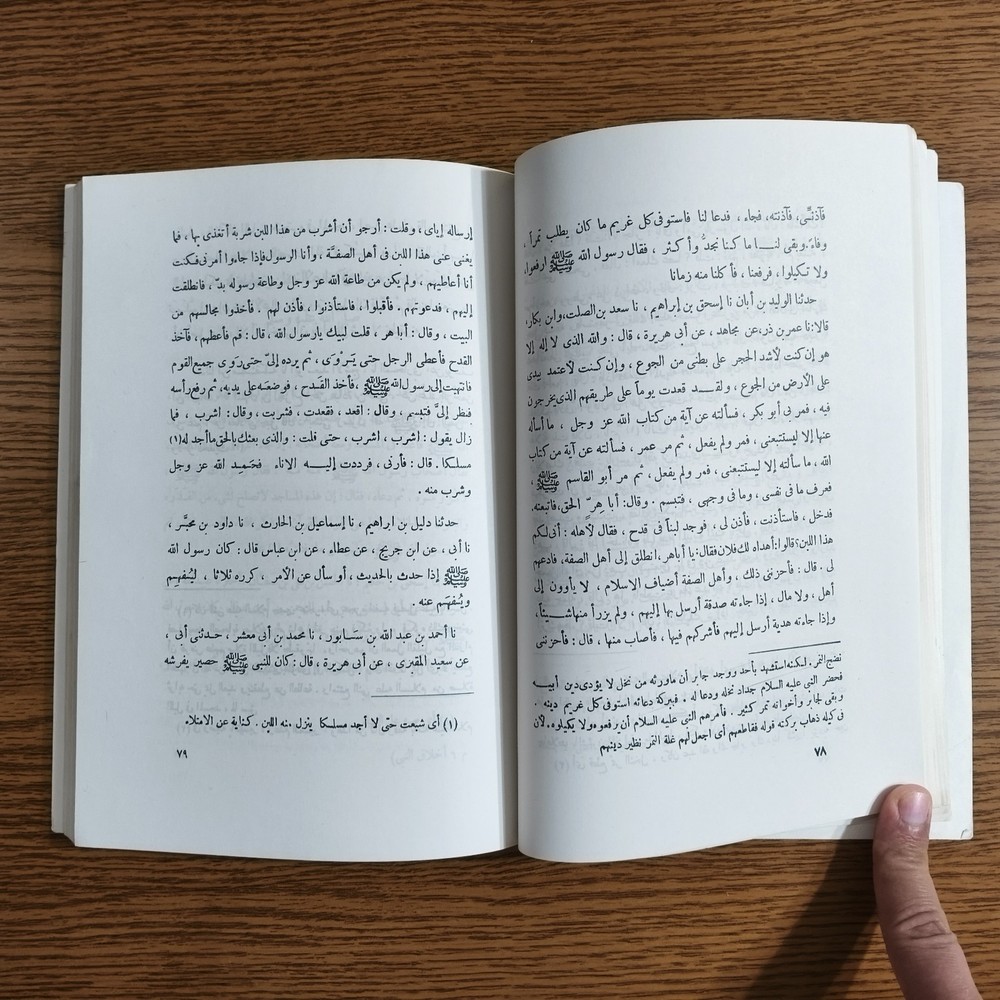 فآذنّى، فآذنته، فجاء ، فدعا لنا فاستوفى كل غريم ما كان يطلب تمراً ،
وفاءً. وبقى لنا ما كنا نجدُّ وأكثر ، فقال رسول الله ﷺ ارفعوا،
ولا تكيلوا، فرفعنا ، فأكلنا منه زمانا
حدثنا الوليد بن أبان نا إسحق بن إبراهيم ، نا سعد بن الصلت، وابن بكار،
قالا: نا عمر بن ذر، عن مجاهد ، عن أبى هريرة ، قال : والله الذى لا إله إلا
هو إن كنت لأشد الحجر على بطنى من الجوع ، وإن كنت لأعتمد بيدى
على الأرض من الجوع ، ولقد قعدت يوماً على طريقهم الذى يخرجون
فيه ، فمر بى أبو بكر ، فسألته عن آية من كتاب الله عز وجل ، ما أسأله
عنها إلا ليستتبعنى ، فمر ولم يفعل ، ثم مر عمر ، فسألته عن آية من كتاب
الله ، ما سألته إلا ليستتبعنى ، فمر ولم يفعل ، ثم مر أبو القاسم ﷺ ،
فعرف ما فى نفسى ، وما فى وجهى ، فتبسم . وقال: أبا هِرّ الحق، فاتبعته.
فدخل ، فاستأذنت ، فأذن لى ، فوجد لبناً فى قدح ، فقال لأهله : أنى لكم
هذا اللبن؟ قالوا: أهداه لك فلان فقال: يا أباهر، انطلق إلى أهل الصفة، فادعهم
لى . قال : فأحزننى ذلك ، وأهل الصفة أضياف الاسلام ، لا يأوون إلى
أهل ، ولا مال ، إذا جاءته صدقة أرسل بها إليهم ، ولم يزرأ منها شيئاً،
وإذا جاءته هدية أرسل إليهم فأشركهم فيها ، فأصاب منها ، قال : فأحزننى
نضج التمر. لكنه استشهد بأحد ووجد جابر أن ماورثه من نخل لا يؤدى دين أبيه
فحضر النبى عليه السلام جداد نخله ودعا له . فببركة دعائه استوفى كل غريم دينه .
وبقى لجابر وأخواته تمر كثير . فأمرهم النبى عليه السلام أن يرفعوه ولا يكيلوه. لأن
فى كيله ذهاب بركته قوله فقاطعهم أى اجعل لهم غلة التمر نظير دينهم
٧٨
إرساله إياى ، وقلت : أرجو أن أشرب من هذا اللبن شربة أتغذى بها ، فما
يغنى عنى هذا اللبن فى أهل الصفة ، وأنا الرسول فإذا جاءوا أمرنى فكنت
أنا أعاطيهم ، ولم يكن من طاعة الله عز وجل وطاعة رسوله بدّ ، فانطلقت
إليهم ، فدعوتهم . فأقبلوا ، فاستأذنوا ، فأذن لهم . فأخذوا مجالسهم من
البيت ، وقال : أبا هر ، قلت لبيك يارسول الله ، قال : قم فأعطهم ، فآخذ
القدح فأعطى الرجل حتى يَرْوَى ، ثم يرده إلىّ حتى رَوِى جميع القوم
فانتهيت إلى رسول الله ﷺ ، فأخذ القدح ، فوضعه على يديه، ثم رفع رأسه
فنظر إلىَّ فتبسم ، وقال : اقعد ، فقعدت ، فشربت ، وقال : اشرب ، فما
زال يقول : اشرب ، اشرب ، حتى قلت : والذى بعثك بالحق ما أجد له (١)
مسلكا . قال : فأرنى ، فرددت إليه الاناء فحَمِد الله عز وجل
وشرب منه .
حدثنا دليل بن ابراهيم ، نا إسماعيل بن الحارث ، نا داود بن محبَّر ،
نا أبى ، عن ابن جريج ، عن عطاء ، عن ابن عباس قال : كان رسول الله
ﷺ إذا حدث بالحديث ، أو سأل عن الأمر ، كرره ثلاثا ، ليُفهِم
ويُفهَم عنه .
نا أحمد بن عبد الله بن سابور ، نا محمد بن أبى معشر ، حدثنى أبى ،
عن سعيد المقبرى ، عن أبى هريرة ، قال : كان للنبى ﷺ حصير يفرشه
(١) أى شبعت حتى لا أجد مسلكا ينزل منه اللبن . كناية عن الامتلاء
٧٩